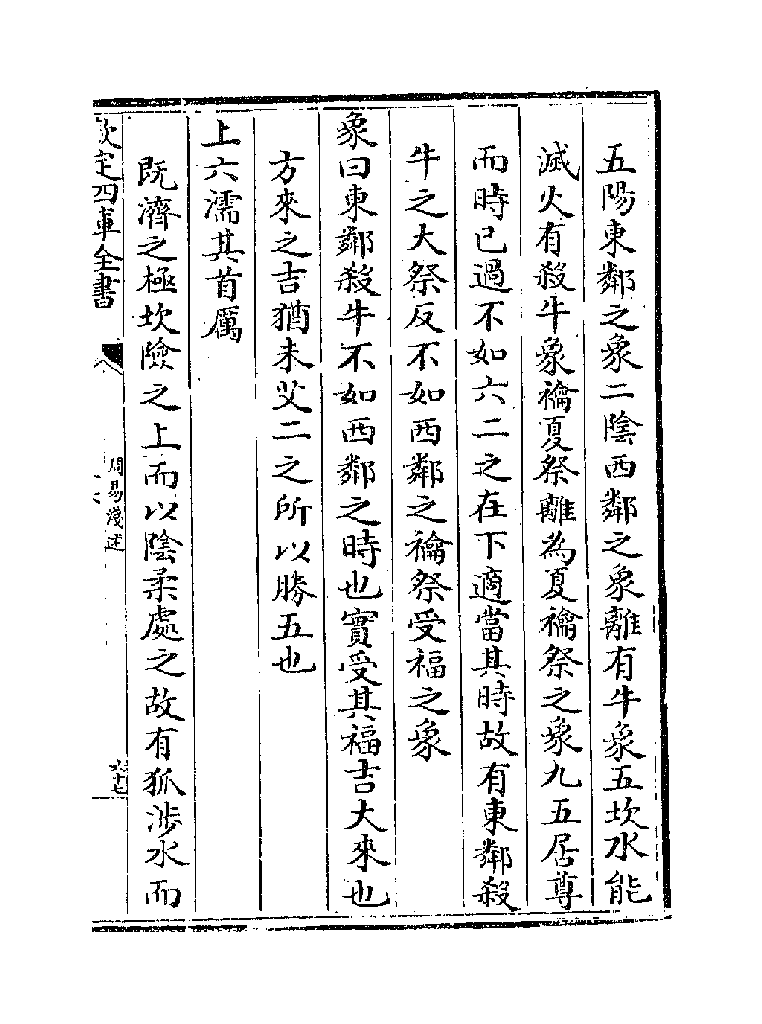 五陽東鄰之象二陰西鄰之象離有牛象五坎水能
滅火有殺牛象禴夏祭離為夏禴祭之象九五居尊
而時已過不如六二之在下適當其時故有東鄰殺
牛之大祭反不如西鄰之禴祭受福之象
象曰東鄰殺牛不如西鄰之時也實受其福吉大來也
方來之吉猶未艾二之所以勝五也
上六濡其首厲
既濟之極坎險之上而以陰柔處之故有狐涉水而
欽定四庫全書
周易淺述